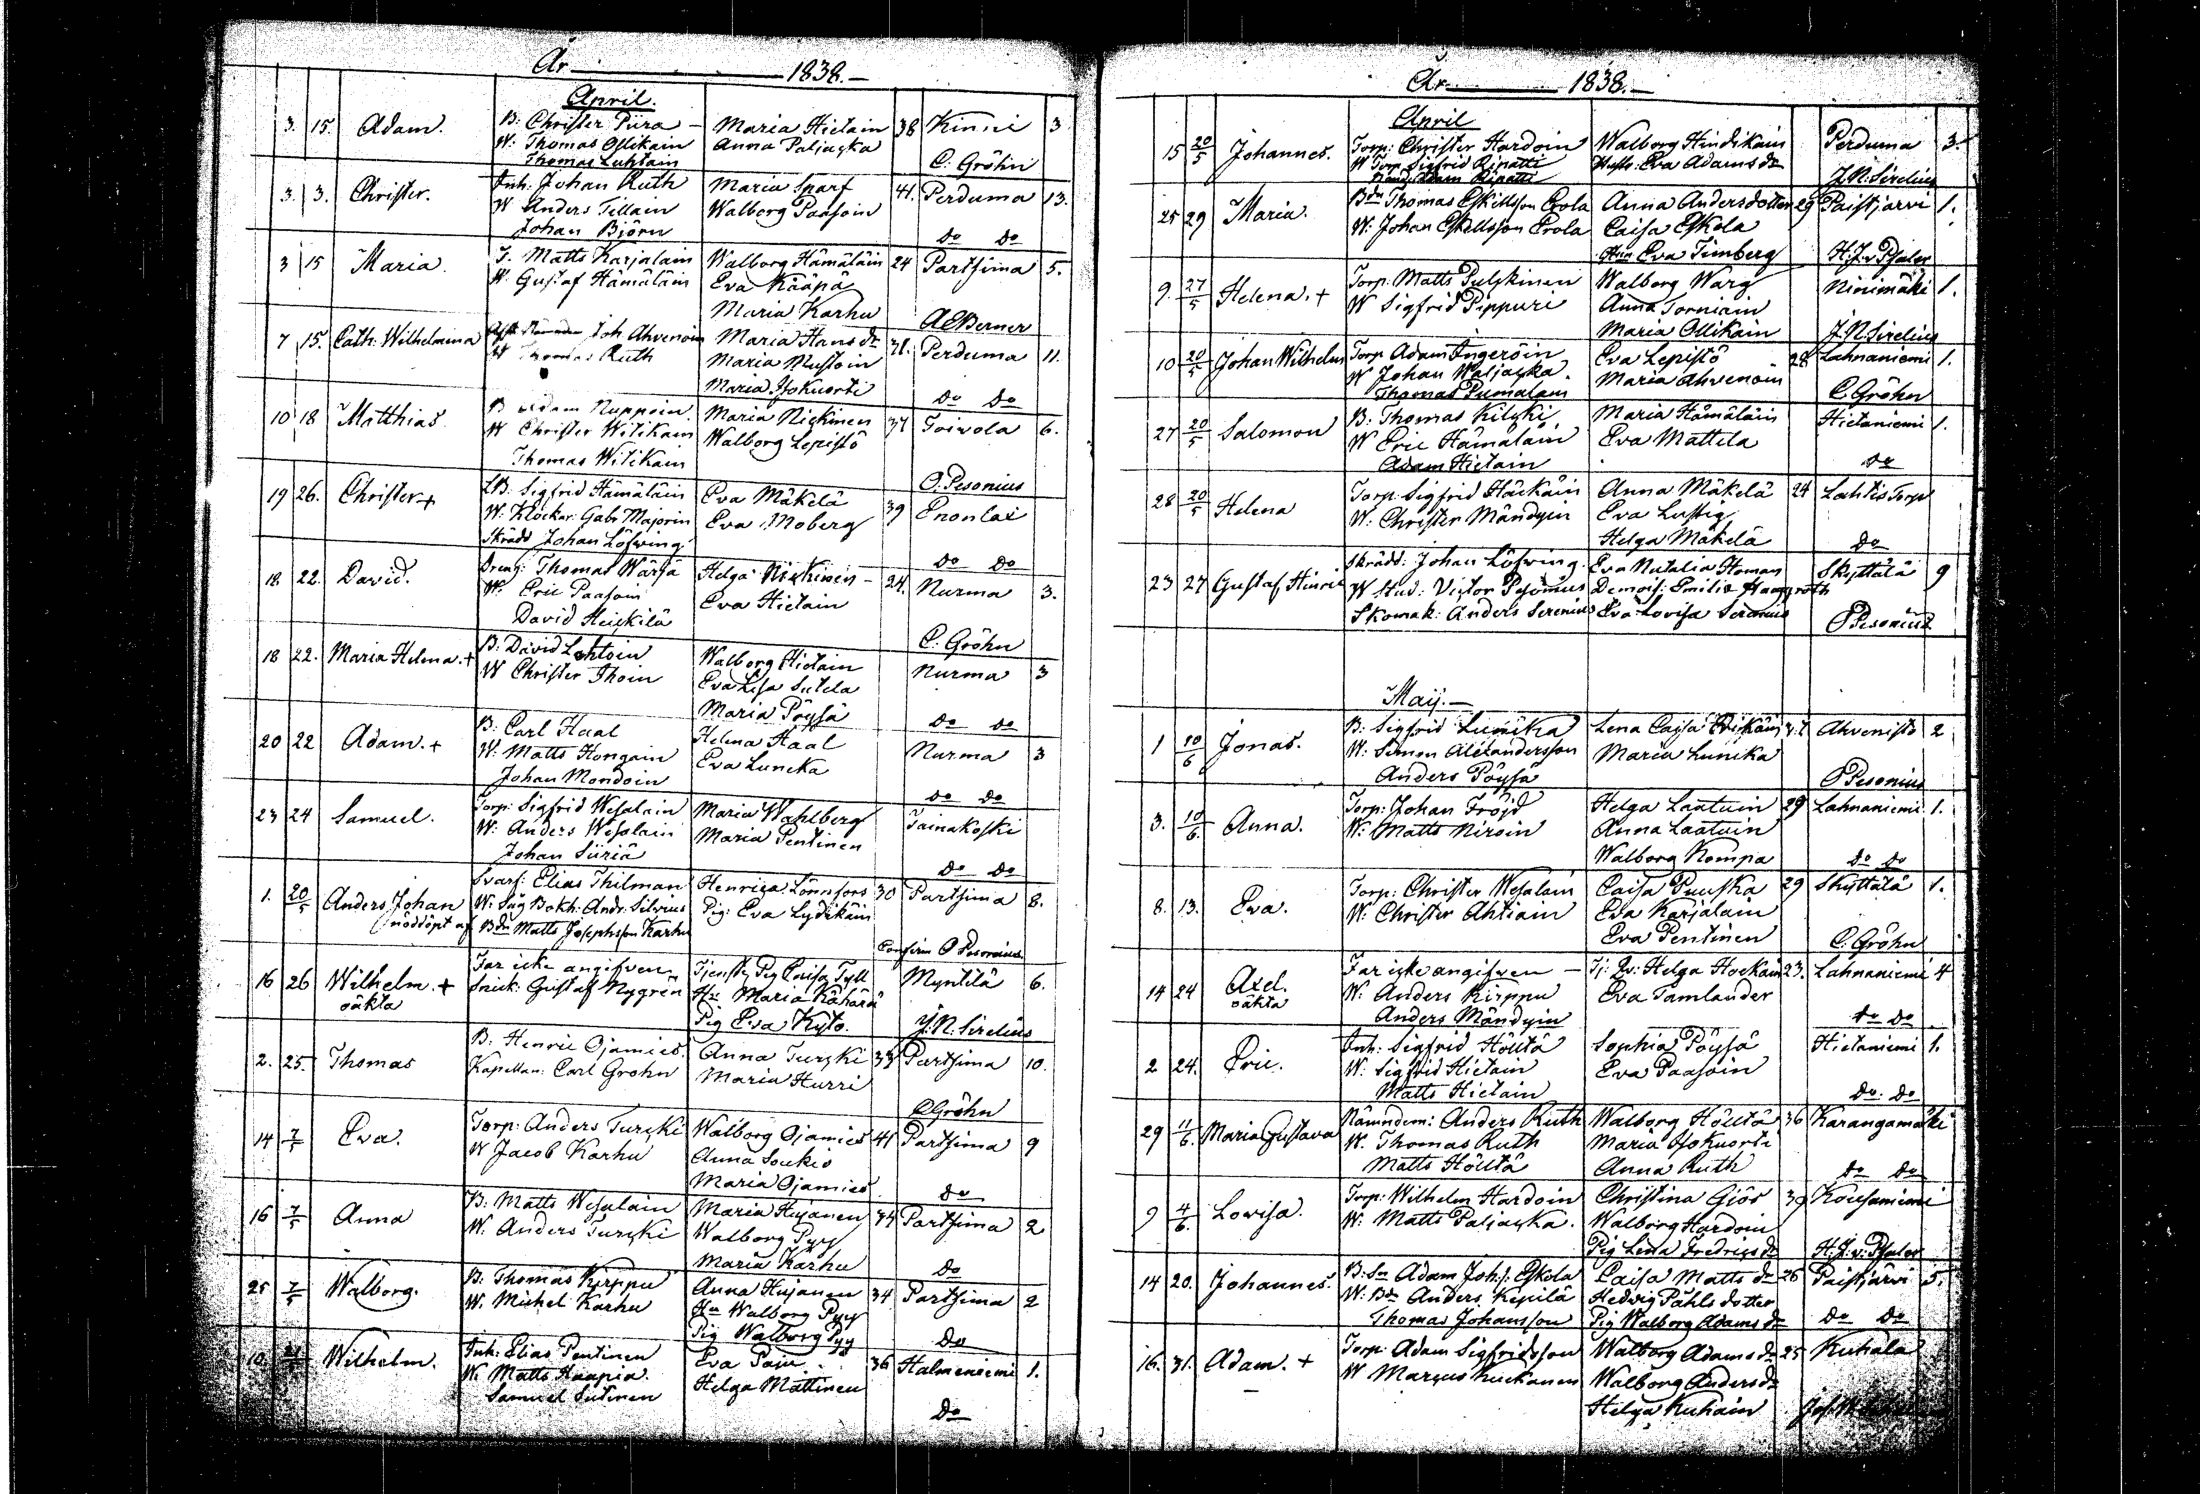 År 1838.
April.
3. 15. Adam. B: Christer Piira Maria Hietain 38 Kinni 3
W: Thomas Ollikain Anna Paljacka
Thomas Luhtain C. Gröhn
3. 3. Christer. Inh: Johan Ruth Maria Sparf 41. Perduma 13.
W Anders Tillain Walborg Paasoin
Johan Björn do do
3 15 Maria. T. Matts Karjalain Walborg Hämäläin 24 Partsima 5.
W. Gustaf Hämäläin Eva Kääpä
Maria Karhu AEBerner
7 15. Cath: Wilhelmina Joh Ahvenoin Maria Hans dr 31. Perduma 11.
W Thomas Ruth Maria Mustoin
Maria Isokuorti do do
10 18 Matthias B Adam Nuppoin Maria Nickinen 37 Toivola 6.
W Christer Witikain Walborg Lepistö
Thomas Witikain O. Pesonius
19 26. Christer + LB: Sigfrid Hämäläin Eva Mäkelä 39 Enonlax
W: Klockar: Gabr Majorin Eva Moberg
Skrädd Johan Löfving do do
18 22. David. Dreng: Thomas Wärjä Helga Nickinen 24. Nurma 3.
W. Eric Paasoin Eva Hietain
David Heickilä C. Gröhn
18 22. Maria Helena. + B: David Lohtoin Walborg Hietain Nurma 3
W Christer Ihoin Eva Lisa Sutela
Maria Pöysä do do
20 22 Adam. + B. Carl Haal Helena Haal Nurma 3
W. Matts Hongain Eva Luncka
Johan Mondoin do do
23 24 Samuel. Torp: Sigfrid Wesalain Maria Wahlberg Tainakoski
W: Anders Wesalain Maria Pentinen
Johan Siiriä do do
1. 20/5 Anders Johan Svarf: Elias Thilman Henrica Lönnfors 30 Partsima 8.
W: Såg Bokh: Andr: Silvius Pig: Eva Lydikäin
nöddöpt af Bdn Matts Josephsson Karhu Confirm O Pesonius
16 26 Wilhelm. + Far icke angifven Tjenste Pig Caisa Tyll Myntilä 6.
oäkta Snick: Gustaf Nygrén Hu Maria Kähärä
Pig Eva Kyto. J.N. Sirelius
2. 25. Thomas B. Henric Ojamies Anna Turcki 33 Partsima 10.
Kapellan: Carl Grohn Maria Hurri
C Gröhn
14 7/5 Eva. Torp: Anders Turcki Walborg Ojamies 41 Partsima 9
W Jacob Karhu Anna Soukio
Maria Ojamies do
16 7/5 Anna B: Matts Wesalain Maria Hujanen 34 Partsima 2
W. Anders Turcki Walborg Pyy
Maria Karhu do
25 7/5 Walborg. B. Thomas Kirppu Anna Hujanen 34 Partsima 2
W. Michel Karhu Hu Walborg Pyy
Pig Walborg Pyy do
10. Wilhelm. Inh: Elias Pentinen Eva Paju 36 Halmeniemi 1.
W. Matts Haapia Helga Mattinen
Samuel Sutinen do
År 1838.
April
15 20/5 Johannes. Torp: Christer Hardoin Walborg Hindikain Perduma 3.
W Torp Sigfrid Ripatti Hustr: Eva Adams dr
Adam Ripatti J.N. Sirelius
25 29 Maria. Bdn Thomas Eskillsson Erola Anna Andersdotter 29 Paistjärvi 1.
W. Johan Eskillsson Erola Caisa Eskola
Hun Eva Timberg H.J. v Pfaler
9. 27/5 Helena. + Torp: Matts Pulckinen Walborg Warg Ninimäki 1.
W Sigfrid Pippuri Anna Torniain
Maria Ollikain J.N. Sirelius
10 20/5 Johan Wilhelm Torp Adam Ingeröin Eva Lepistö 28 Lahnaniemi 1.
W Johan Waljacka. Maria Ahvenoin
Thomas Pumalain C. Gröhn
27 20/5 Salomon B. Thomas Kilcki Maria Hämäläin Hietaniemi 1.
W Eric Hämäläin Eva Mattila
Adam Hietain do
28 20/5 Helena Torp: Sigfrid Häckäin Anna Mäkelä 24 Lahtis Torp
W. Christer Mändyin Eva Lustig
Helga Mäkelä do
23 27 Gustaf Hinric Skrädd: Johan Löfving. Eva Natalia Homan Skyttälä 9
W Stud: Victor Pesonius Demois: Emilie Haggroth
Skomak: Anders Serenius Eva Lovisa Serenius O Pesonius
Maij.
1 10/6 Jonas. B. Sigfrid Lunika Lena Caisa Ahvenisto 2
W: Simon Alexandersson Maria Lunika
Anders Pöysä O Pesonius
3. 10/6 Anna. Torp: Johan Fröjd Helga Laatuin 29 Lahnaniemi 1.
W: Matts Niroin Anna Laatuin
Walborg Kompa do do
8. 13. Eva. Torp: Christer Wesalain Caisa Puuska 29 Skyttälä 1.
W: Christer Ahtiain Eva Karjalain
Eva Pentinen C. Gröhn
14 24 Axel. Far icke angifven Tj: Qv: Helga Hockain 23. Lahnaniemi 4
oäkta W. Anders Kirppu Eva Tamlander
Anders Mändyin do do
2 24. Eric. Inh: Sigfrid Höltä Sophia Pöysä Hietaniemi 1.
W. Sigfrid Hietain Eva Paasoin
Matts Hietain do. do
29 11/6. Maria Gustava Nämndem: Anders Ruth Walborg Höltä 36 Karangamäki
W. Thomas Ruth Maria Isokuorti
Matts Höltä Anna Ruth do do
9 4/6. Lovisa. Torp: Wilhelm Hardoin Christina Giös 39 Kousaniemi
W: Matts Paljacka. Walborg Hardoin
Pig Lena Fredrics dr H.J. v. Pfaler
14 20. Johannes. B: Sn Adam Joh: s: Eskola Caisa Matts dr 26 Paistjärvi 5.
W. Bdn Anders Kepilä Hedvig Påhls dotter
Thomas Johansson Pig Walborg Adams dr do do
16. 31. Adam. + Torp: Adam Sigfridsson Walborg Adams dr 25 Kuhala
W Marcus Kuckanen Walborg Anders dr
Helga Kuhain